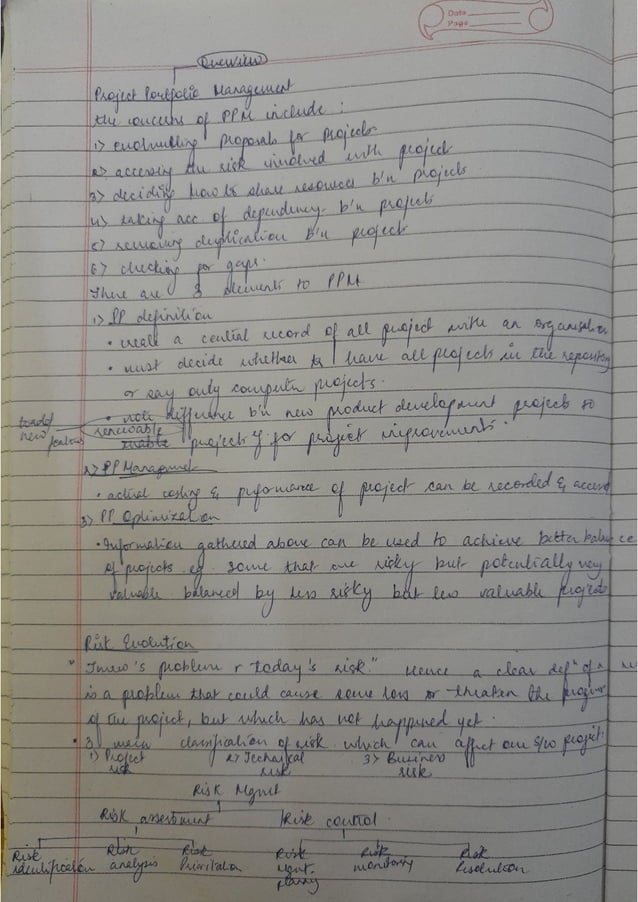 Date
Page
Overview
Project Portfolio Management
the concerns of PPM include :
1) evaluating proposals for projects
2) accessing the risk involved with project
3) deciding how to share resources b'n projects
4) taking acc. of dependency b'n projects
5) removing duplication b'n project
6) checking for gaps.
There are 3 elements to PPM
1) PP definition
• creat a central record of all project with an organisation
• must decide whether to have all projects in the repository
or say only computer projects.
• note difference b'n new product development projects to
new
renewable projects for project improvements.
2) PP Management
• actual costing & performance of project can be recorded & accesed
3) PP Optimization
• Information gathered above can be used to achieve better balance
of projects eg. some that are risky but potentially very
valuable balanced by less risky but less valuable projects
Risk Evolution
" Tmrw's problem r today's risk." Hence a clear defn of
is a problem that could cause some loss or threaten the
of the project, but which has not happened yet.
• 3 main classification of risk which can affect our s/w project.
1) Project risk 2) Technical risk 3) Business risk
Risk Mgmt
Risk assessment Risk control
Risk identification Risk analysis Risk Prioritation Risk Mgmt. planning Risk monitoring Risk Resolution